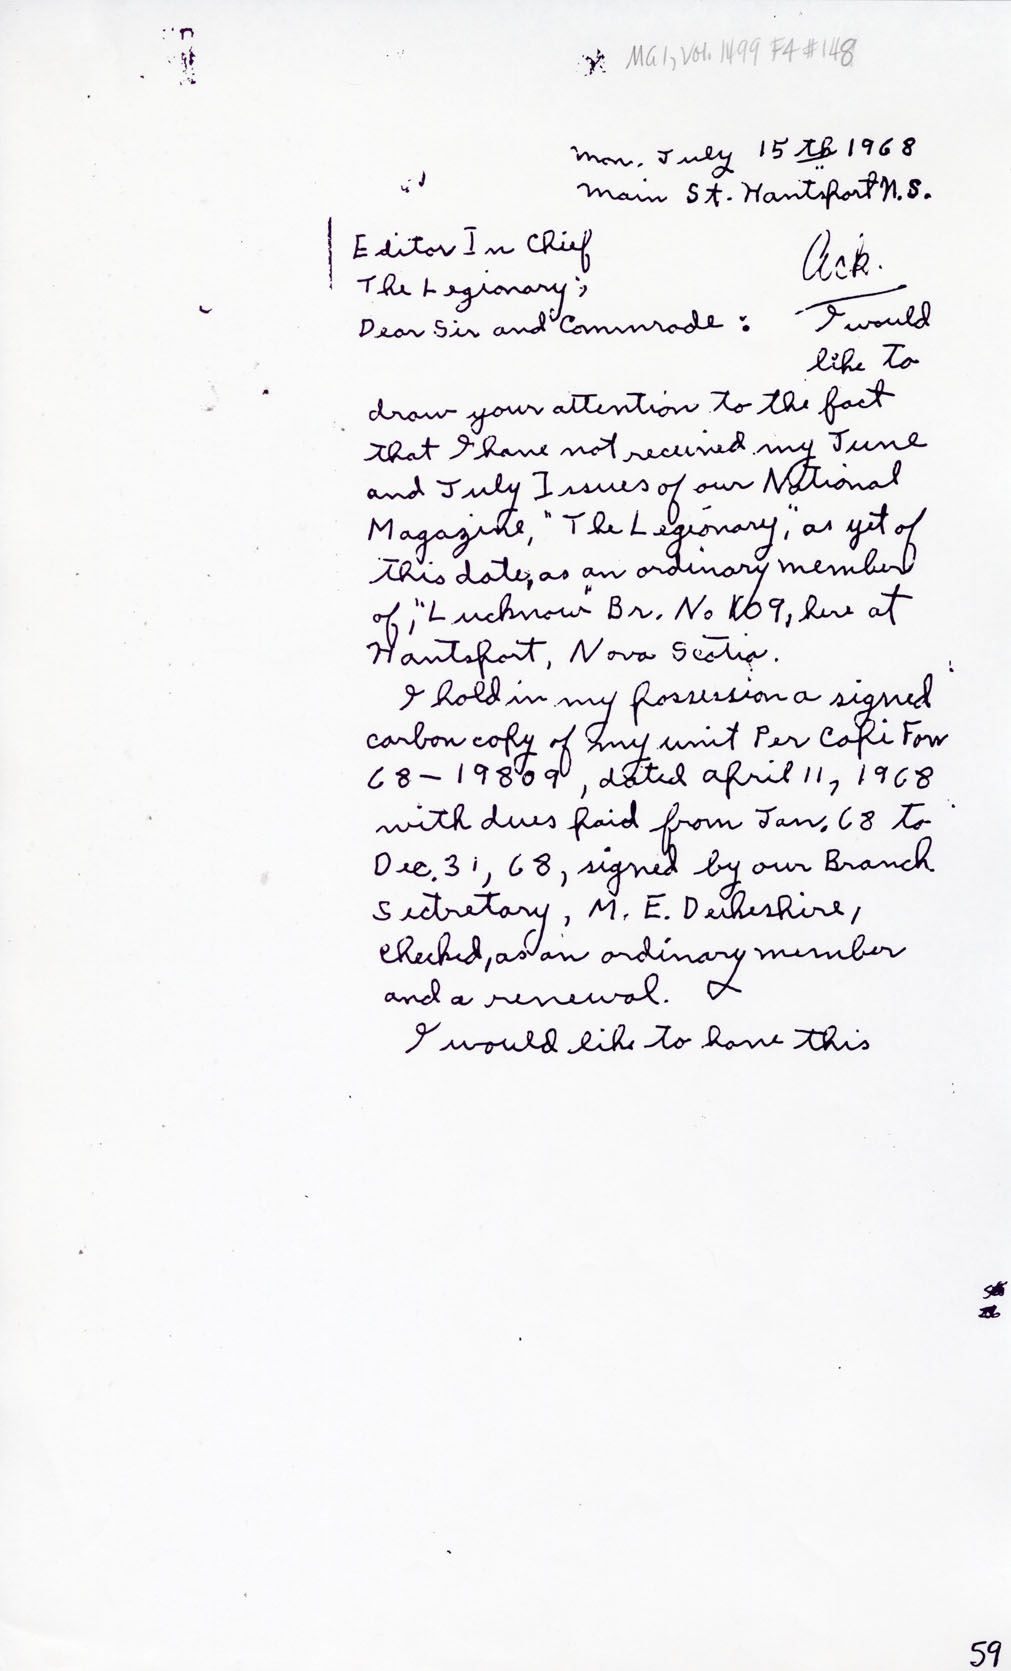 MG1, Vol. 1499 F4 #148
Mon. July 15th 1968
Main St. Hantsport N.S.
Editor In Chief
Ack.
The Legionary;,
Dear Sir and Commrade : I would
like to
draw your attention to the fact
that I have not received my June
and July Issues of our National
Magazine, "The Legionary," as yet of
this date, as an ordinary member
of, "Lucknow" Br. No 109, here at
Hantsport, Nova Scotia.
I hold in my possession a signed
carbon copy of my unit Per Capi Form
68-19809, dated April 11, 1968
with dues paid from Jan. 68 to
Dec. 31, 68, signed by our Branch
Sectretary, M. E.
checked, as an ordinary member
and a renewal.
I would like to have this
59